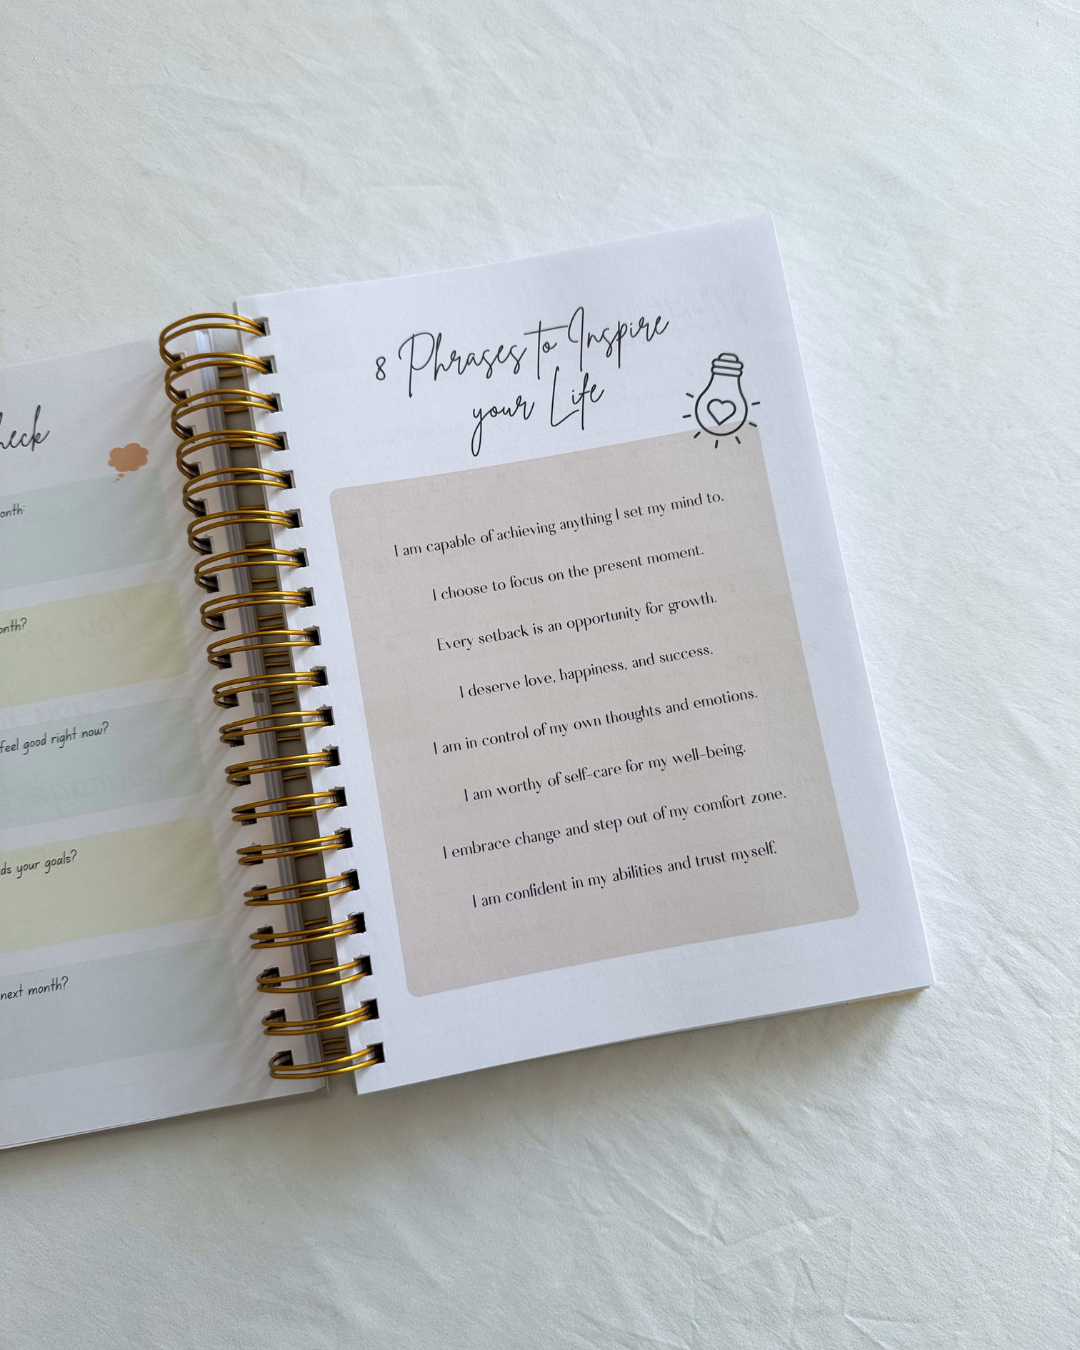 onth:
onth?
feel good right now?
ds your goals?
next month?
8 Phrases to Inspire
your Life
I am capable of achieving anything I set my mind to.
I choose to focus on the present moment.
Every setback is an opportunity for growth.
I deserve love, happiness, and success.
I am in control of my own thoughts and emotions.
I am worthy of self-care for my well-being.
I embrace change and step out of my comfort zone.
I am confident in my abilities and trust myself.